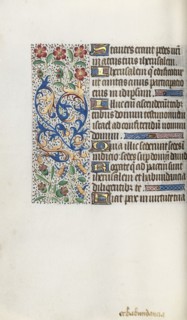 Stantes erant pedes nri
in atrijs tuis iherusalem.
Iherusalem que edificatur
ut ciuitas cuius participatio
eius in idipsum
Illuc enim ascenderunt
tribus domini testimonium
israel ad confitendum nomini
domini
Quia illic sederunt sedes
in sedes super domum dauid
Rogate que ad pacem sunt
iherusalem et habundantia
diligentibus te
Fiat pax in uirtute tua